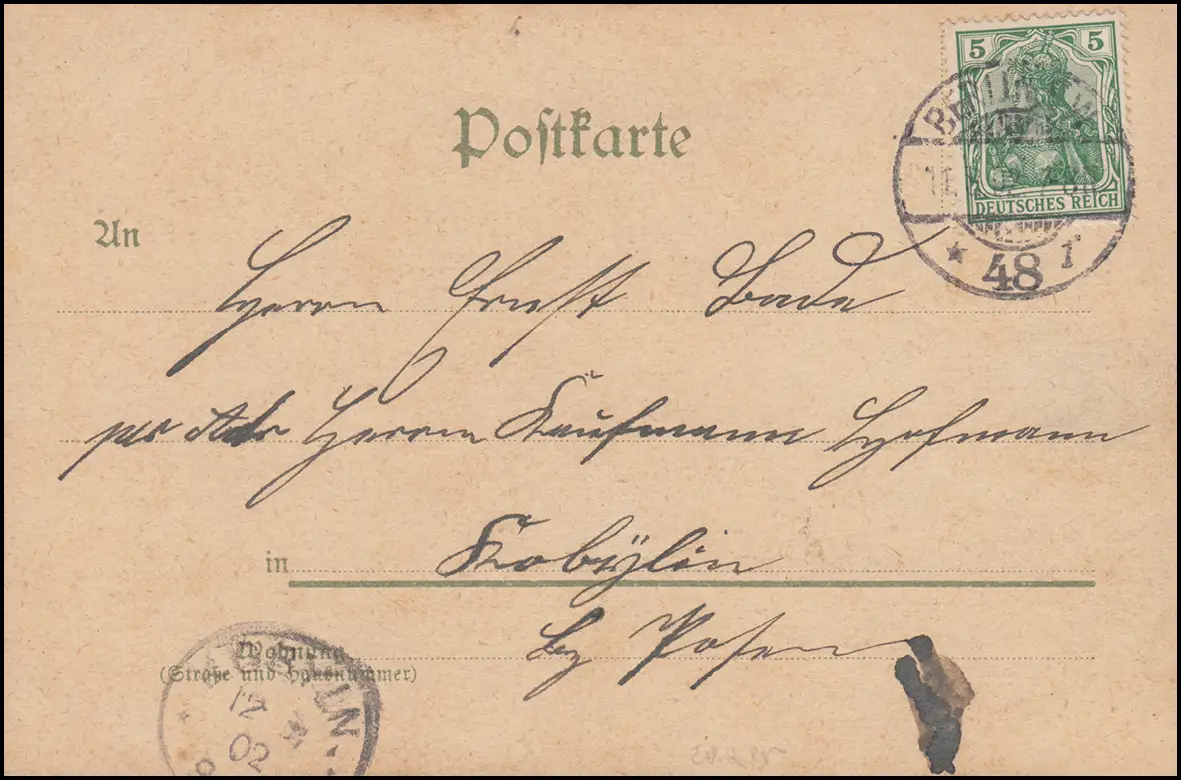 Postkarte
5 5
DEUTSCHES REICH
BERLIN
* 48 1
An
Herrn Ernst Bade
per Adr Herrn Kaufmann Hofmann
in Kobylin
Bz Posen
Wohnung
(Straße und Hausnummer)
KOBYLIN
12
02